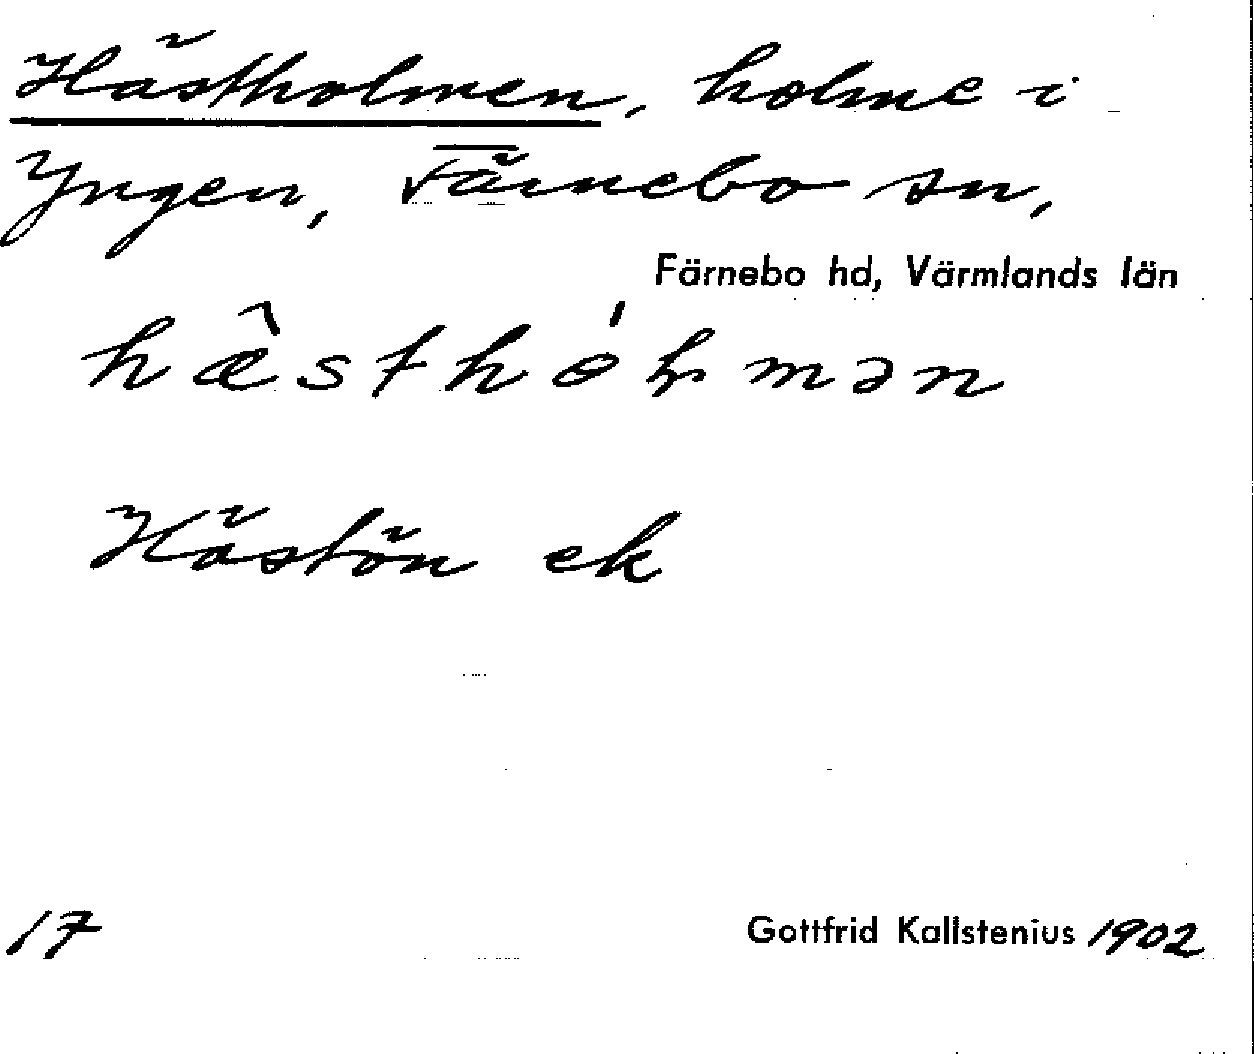 Hästholmen, holme i
Yngen, Färnebo sn,
Färnebo hd, Värmlands län
hæ̂sthólmən
Hästön ek
17
Gottfrid Kallstenius 1902